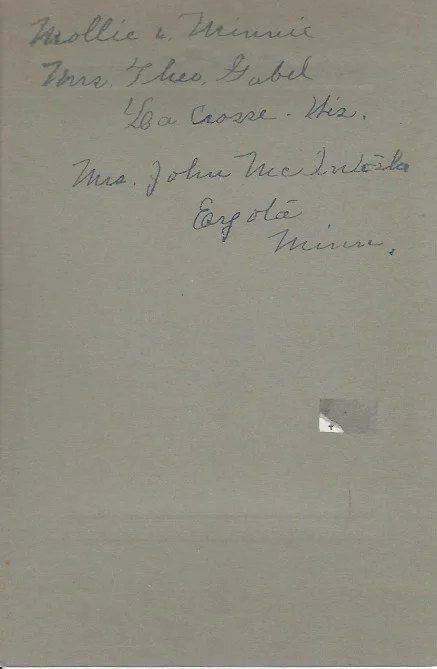 Mollie & Minnie
Mrs. Theo. Gabel
La Crosse - Wis.
Mrs. John
Eyota
Minn.